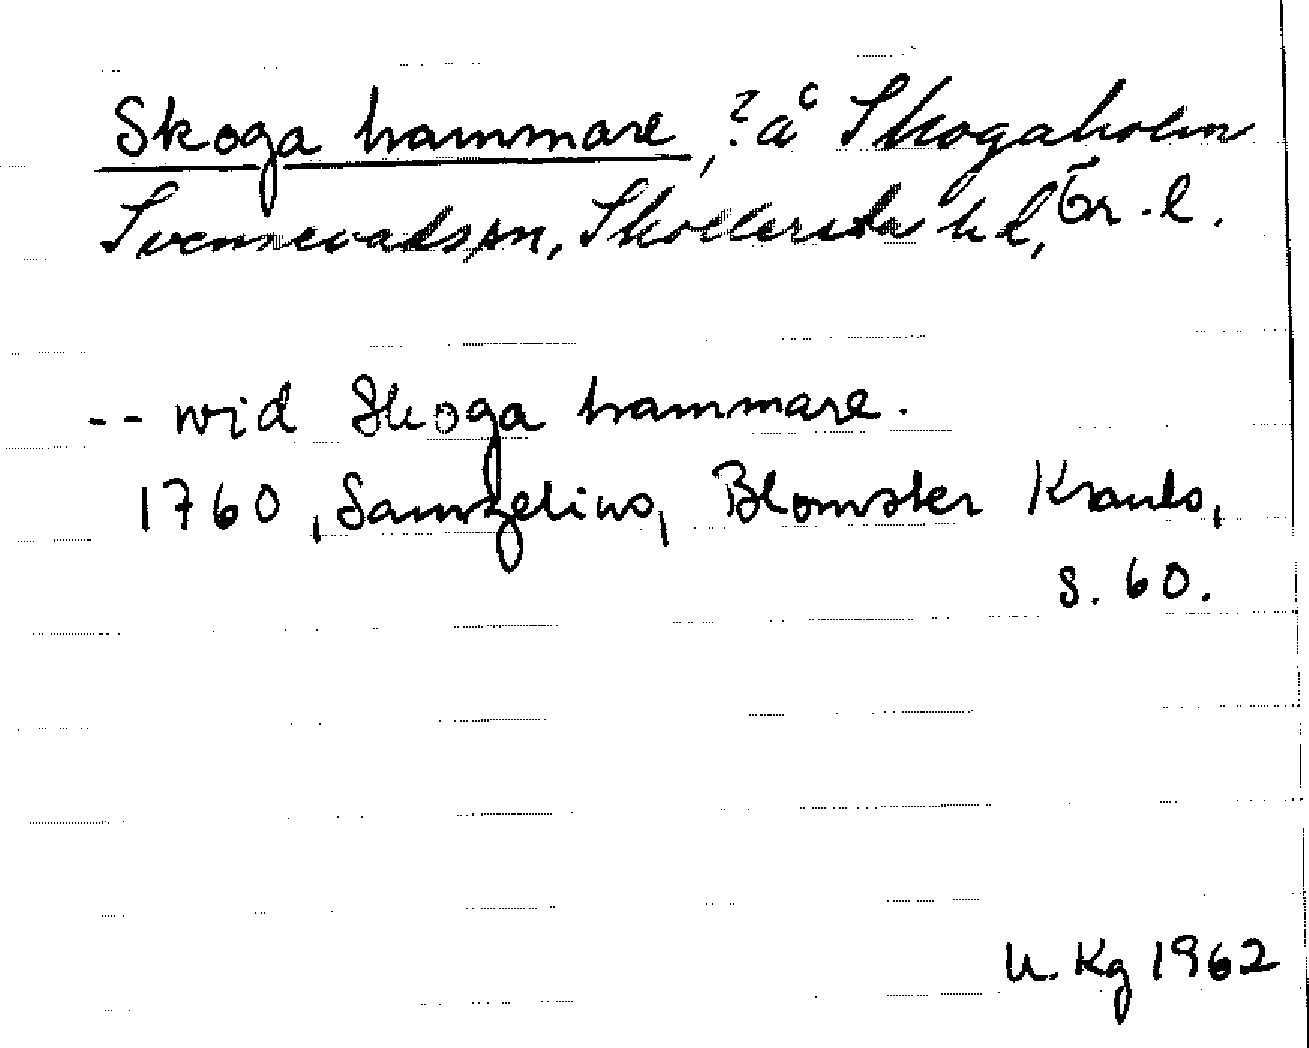 Skoga hammare, ?å Skogaholm
Svennevads sn, Skollersta hd, Ör. l.
-- wid Skoga hammare.
1760, Samzelius, Blomster Krants,
s. 60.
U. Kg 1962